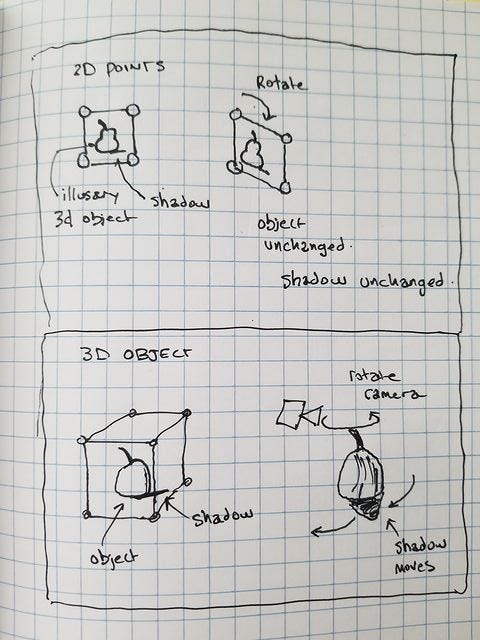 2D POINTS
Rotate
illusary
3d object
shadow
object
unchanged.
Shadow unchanged.
3D OBJECT
rotate
camera
shadow
object
shadow
moves